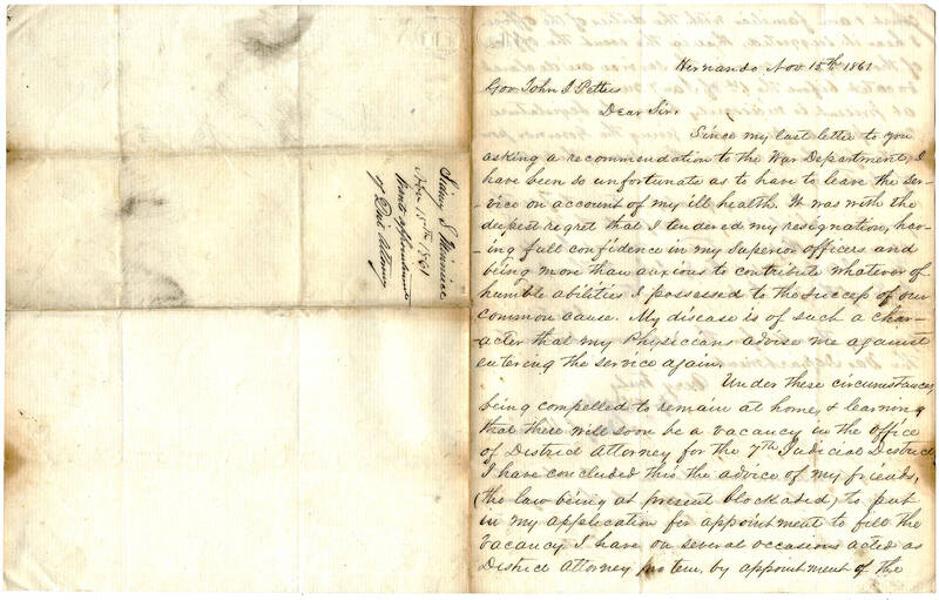 Sidney S Minniece
Nov 15th 1861
Wants appointment
of Dist Attorney
Hernando Nov. 15th 1861
Gov John J Pettus
Dear Sir,
Since my last letter to you
asking a recommendation to the War Department, I
have been so unfortunate as to have to leave the ser-
-vice on account of my ill health. It was with the
deepest regret that I tendered my resignation, hav-
-ing full confidence in my Superior officers and
being more than anxious to contribute whatever of
humble abilities I possessed to the success of our
common cause. My disease is of such a char-
-acter that my Physicians advise me against
entering the service again.
Under these circumstances,
being compelled to remain at home, & learning
that there will soon be a vacancy in the office
of District Attorney for the 7th Judicial District
I have concluded thro the advice of my friends,
(the law being at present blockaded) to put
in my application for appointment to fill the
vacancy. I have on several occasions acted as
District Attorney pro tem. by appointment of the